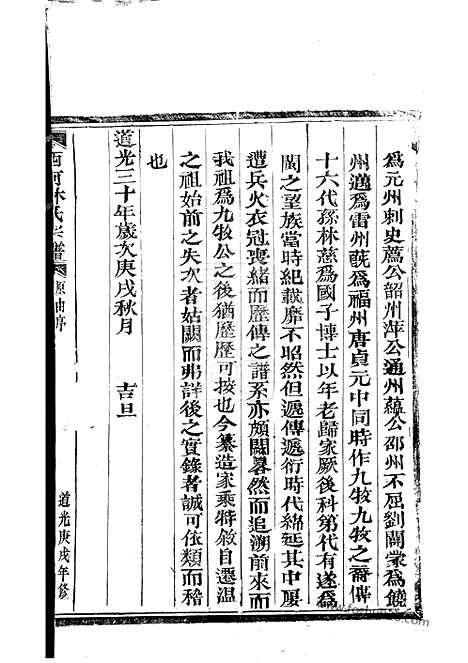 爲元州刺史薦公韶州萍公通州蘊公邵州不屈劉闢蒙爲饒
州邁爲雷州蔇爲福州唐貞元中同時作九牧九牧之裔傳
十六代孫林慈爲國子博士以年老歸家厥後科第代有遂爲
閩之望族當時紀載靡不昭然但遞傳遞衍時代綿延其中屢
遭兵火衣冠喪緒而歷傳之譜系亦頗闕畧然而追溯前來而
我祖爲九牧公之後猶歷歷可按也今纂造家乘特敘自遷温
之祖始前之失次者姑闕而弗詳後之實錄者誠可依類而稽
也
道光三十年歲次庚戌秋月 吉旦
西河林氏宗譜 原由序 道光庚戌年修